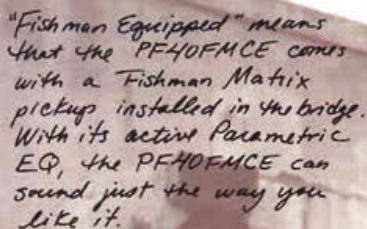 "Fishman Equipped" means
that the PF40FMCE comes
with a Fishman Matrix
pickup installed in the bridge.
With its active Parametric
EQ, the PF40FMCE can
sound just the way you
like it.